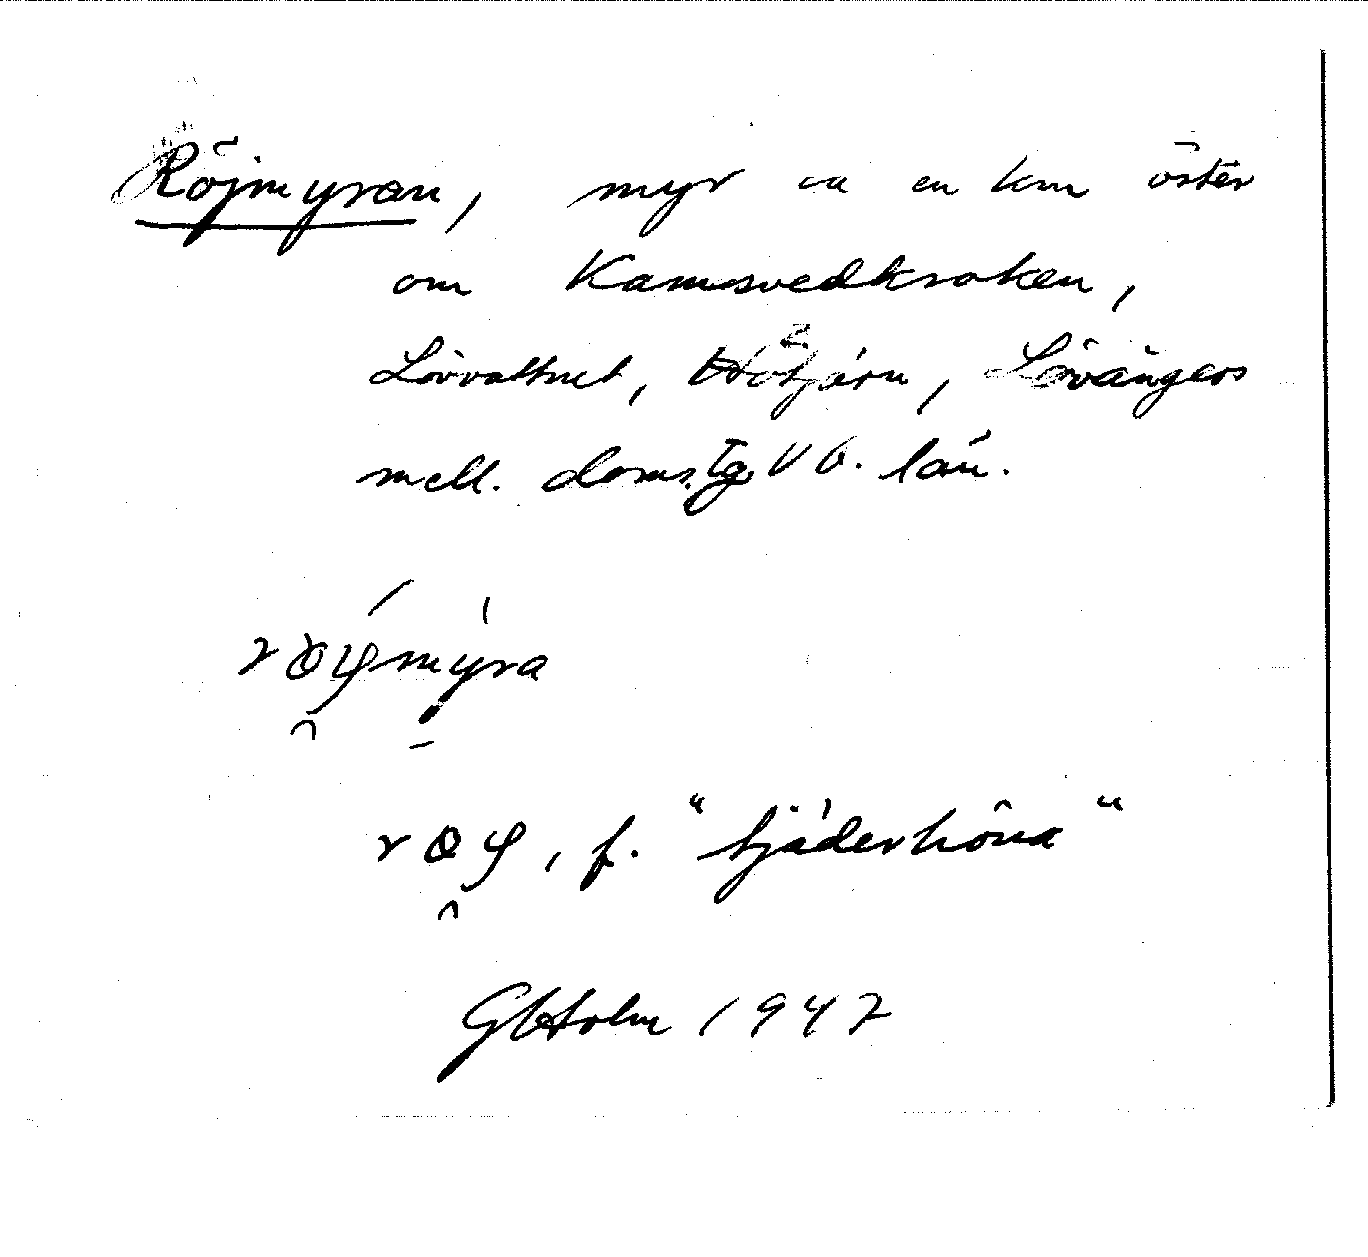 Röjmyran, myr ca en km öster
om Kamsvedkroken,
Lövvattnet, Hötjärn, Lövångers
mell. doms. tg VB. län.
røymyra
røy, f. "tjäderhöna"
G Holm 1947